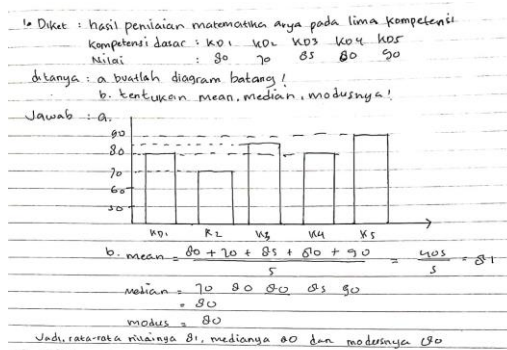 1. Diket : hasil penilaian matematika arya pada lima kompetensi
kompetensi dasar : KD1 KD2 KD3 KD4 KD5
Nilai : 80 70 85 80 90
ditanya : a buatlah diagram batang !
b. tentukan mean, median, modusnya !
Jawab : a.
90
80
70
60
50
KD1 K2 K3 K4 K5
b. mean = 80 + 70 + 85 + 80 + 90 / 5 = 405 / 5 = 81
Median = 70 80 80 85 90
= 80
modus = 80
Jadi, rata-rata nilainya 81, medianya 80 dan modusnya 80